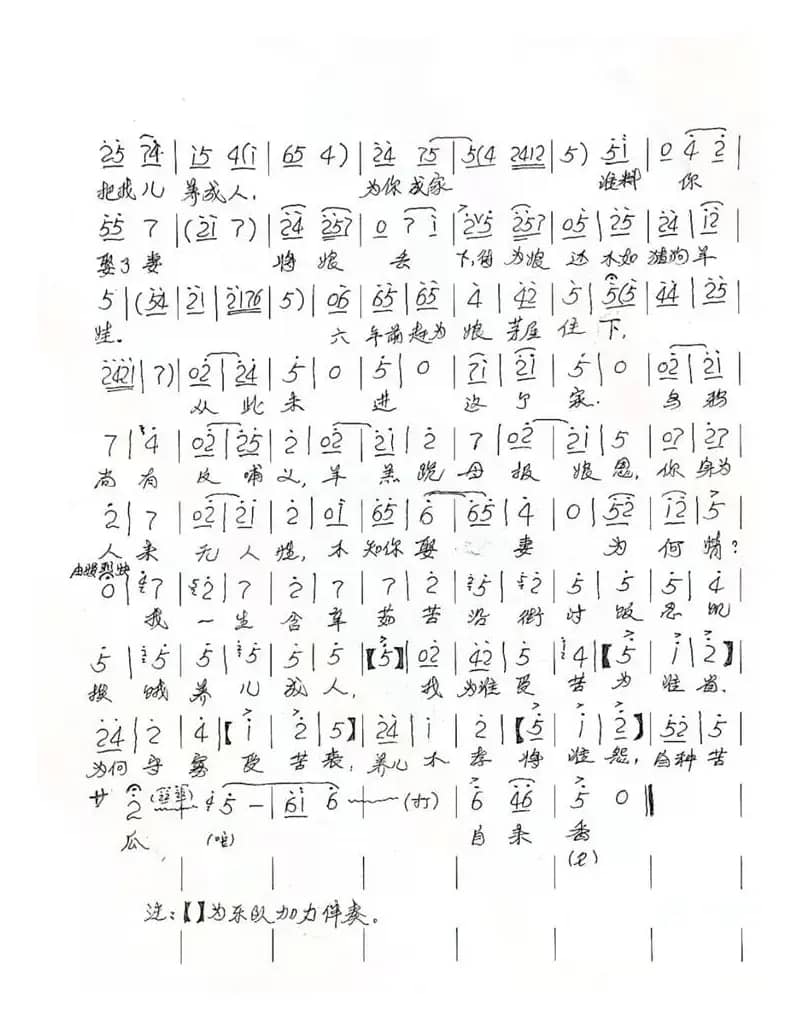 2̇5̇ 7̇4̇ | i̇5 4(i̇ | 6̇5 4) | 2̇4̇ 7̇5 | 5(4 2̇4̇1̇2̇ | 5) 5̇i̇ | 0 4̇ 2̇ |
把我儿 养成人, 为你成家 谁料 你
5̇5̇ 7 | (2̇i̇ 7) | 2̇4̇ 2̇5̇7 | 0 7 i̇ | 2̇5̇ 2̇5̇7 | 0 5̇ | 2̇5̇ | 2̇4̇ | i̇2̇ |
娶了妻 将 娘 丢 下, 待 为娘 还 不如 猪狗 羊
5 | (5̇4̇ | 2̇i̇ | 2̇i̇76 | 5) | 06 | 6̇5 | 6̇5 | 4 | 4̇2̇ | 5 | 5(5 | 4̇4̇ | 2̇5̇ |
娃. 六 年前 赶为 娘 茅屋 住 下,
2̇4̇2̇i̇ | 7) | 02̇ | 2̇4̇ | 5̇ | 0 | 5̇ | 0 | 7i̇ | 2̇i̇ | 5̇ | 0 | 02̇ | 2̇i̇ |
从 此 未 进 这 个 家. 乌 鸦
7 | 4̇ | 02̇ | 2̇5̇ | 2̇ | 02̇ | 2̇i̇ | 2̇ | 7 | 02̇ | 2̇i̇ | 5 | 07 | 2̇7 |
尚 有 反 哺 义, 羊 羔 跪 母 报 娘 恩, 你 身为
2̇ | 7 | 02̇ | 2̇i̇ | 2̇ | 0i̇ | 6̇5 | 6 | 6̇5 | 4̇ | 0 | 5̇2̇ | i̇2̇ | 5̇
人 来 无 人 性, 不 知你 娶 妻 为 何 情?
由慢到快
0 | 7 | 2̇ | 7 | 2̇ | 7 | 7 | 2̇ | 5̇ | 2̇ | 5̇ | 5̇ | 5̇ | 4̇
我 一 生 含 辛 茹 苦 沿 街 讨 饭 忍 饥
5̇ | 5̇ | 5̇ | 5̇ | 5̇ | 5̇ | 【5̇】 | 02̇ | 4̇2̇ | 5̇ | 4̇ | 【5̇ | i̇ | 2̇】|
挨 饿 养 儿 成 人, 我 为谁 受 苦 为 谁 省,
2̇4̇ | 2̇ | 4̇ | 【i̇ | 2̇ | 5】| 2̇4̇ | i̇ | 2̇ | 【5̇ | i̇ | 2̇】| 5̇2̇ | 5̇
为何 守 寡 受 苦 衷, 养儿 不 孝 将 谁 怨, 自种 苦
サ 2̇ 5̇ — | 6̇i̇ 6̇ (打) | 6̇ 4̇6̇ | 5̇ 0 ‖
瓜, (哇) 自 来 吞
注:【】为乐队加力伴奏。